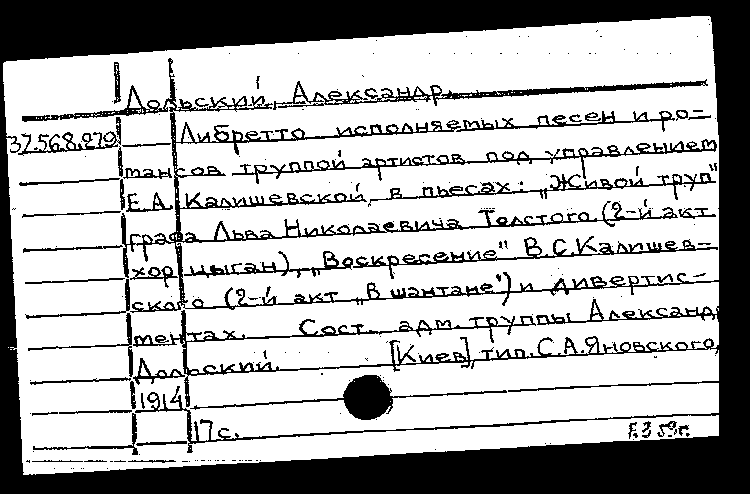 Дольский, Александр.
37.568.279 Либретто исполняемых песен и ро-
мансов труппой артистов под управлением
Е.А. Калишевской, в пьесах: „Живой труп"
графа Льва Николаевича Толстого (2-й акт
хор цыган), „Воскресение" В.С. Калишев-
ского (2-й акт „В шантане") и дивертис-
ментах. Сост. адм. труппы Александр
Дольский. [Киев], тип. С.А. Яновского,
1914.
17 с.